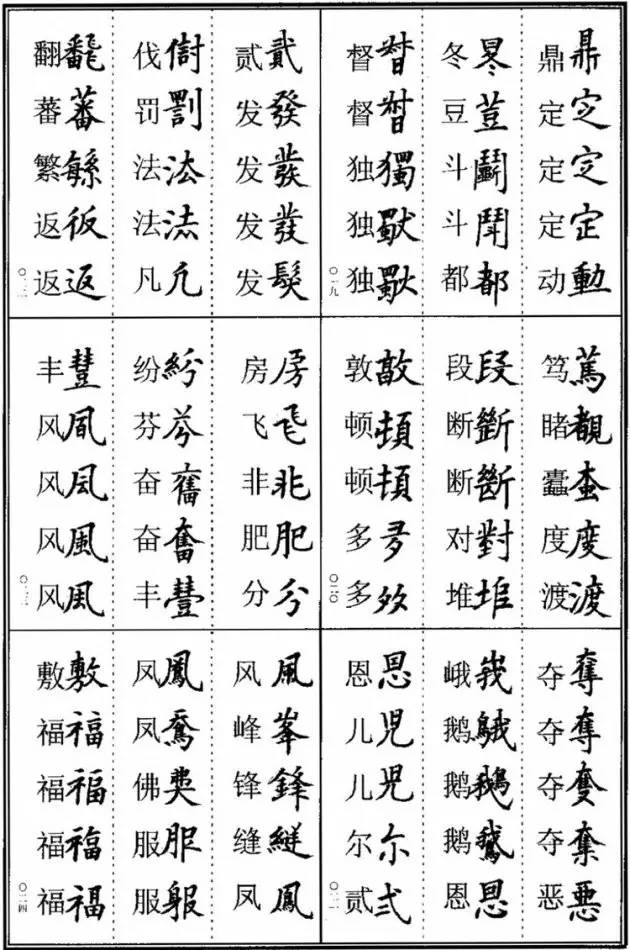 鼎 鼎
定 㝎
定 㝎
定 定
动 動
冬 冬
豆 荳
斗 鬭
斗 鬥
都 都
督 督
督 督
独 獨
独
独
〇一九
笃 篤
睹 覩
蠹
度 度
渡 渡
段 段
断 斷
断 斷
对 對
堆
敦 敦
顿 頓
顿 頓
多 多
多
〇二〇
夺 奪
夺 奪
夺
夺
恶 悪
峨 峩
鹅
鹅 鵝
鹅 鵞
恩 恩
恩 恩
儿 児
儿 児
尔 尓
贰 弍
〇二一
贰 貳
发 發
发 發
发 發
发 髮
伐
罚 罰
法 法
法 法
凡 凢
翻 飜
蕃 蕃
繁 緐
返 仮
返 返
〇二二
房 房
飞 飛
非 非
肥 肥
分 分
纷 紛
芬 芬
奋 奮
奋 奮
丰 豐
丰 豐
风 凬
风 凨
风 風
风 風
〇二三
风 風
峰 峯
锋 鋒
缝 縫
凤 鳳
凤 鳳
凤
佛
服 服
服 服
敷 敷
福 福
福 福
福 福
福 福
〇二四